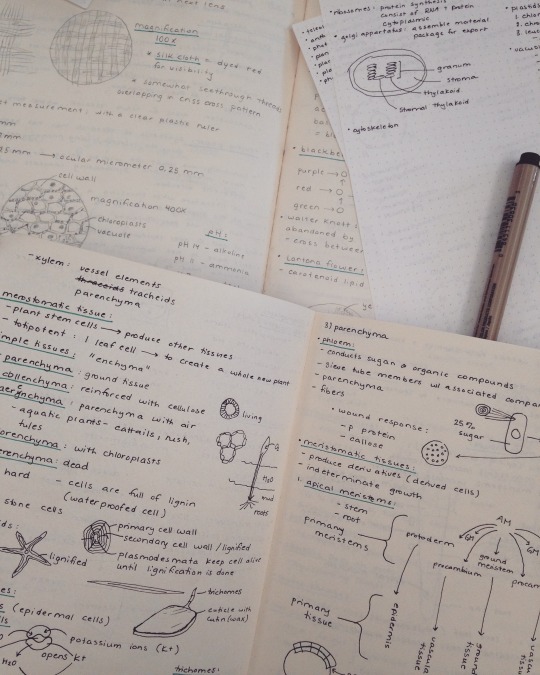 magnification
100x
* silk cloth - dyed red
for visibility
* somewhat seethrough threads
overlapping in criss cross pattern
measurement: with a clear plastic ruler
mm
mm
mm → ocular micrometer 0.25 mm
cell wall
magnification 400x
chloroplasts
vacuole
pH:
pH 14 - alkaline
- ammonia
ribosomes: protein synthesis
consist of RNA + protein
cytoplasmic
• golgi apparatus: assemble material
package for export
• plastids
1. chlor
2. chro
3. leuc
• vacuo
granum
stroma
thylakoid
stromal thylakoid
• cytoskeleton
• blackbe
purple → O
red → O
green → O
• walter knott
abandoned by
- cross between
• lantana flower:
- carotenoid lipid
- xylem: vessel elements
tracheids
parenchyma
meristematic tissue:
- plant stem cells → produce other tissues
- totipotent: 1 leaf cell → to create a whole new plant
imple tissues: "enchyma"
parenchyma: ground tissue
collenchyma: reinforced with cellulose
aerenchyma: parenchyma with air
- aquatic plants - cattails, rush,
tules
orenchyma: with chloroplasts
renchyma: dead
hard - cells are full of lignin
(waterproofed cell)
stone cells
living
H₂O
mud
roots
ids:
lignified
primary cell wall
secondary cell wall / lignified
plasmodesmata keep cell alive
until lignification is done
trichomes
cuticle with
cutin (wax)
es:
s (epidermal cells)
lls
potassium ions (K+)
opens K+
H₂O
trichomes:
3) parenchyma
• phloem:
- conducts sugar & organic compounds
- sieve tube members w/ associated compan
- parenchyma
- fibers
• wound response:
- p protein
- callose
25%
sugar
• meristematic tissues:
- produce derivatives (derived cells)
- indeterminate growth
1. apical meristems:
- stem
- root
AM
primary
meristems
protoderm
GM
ground
meristem
GM
procambium
procam
primary
tissue
epidermis
vascular
tissue
ground
tissue
vascu
tissu